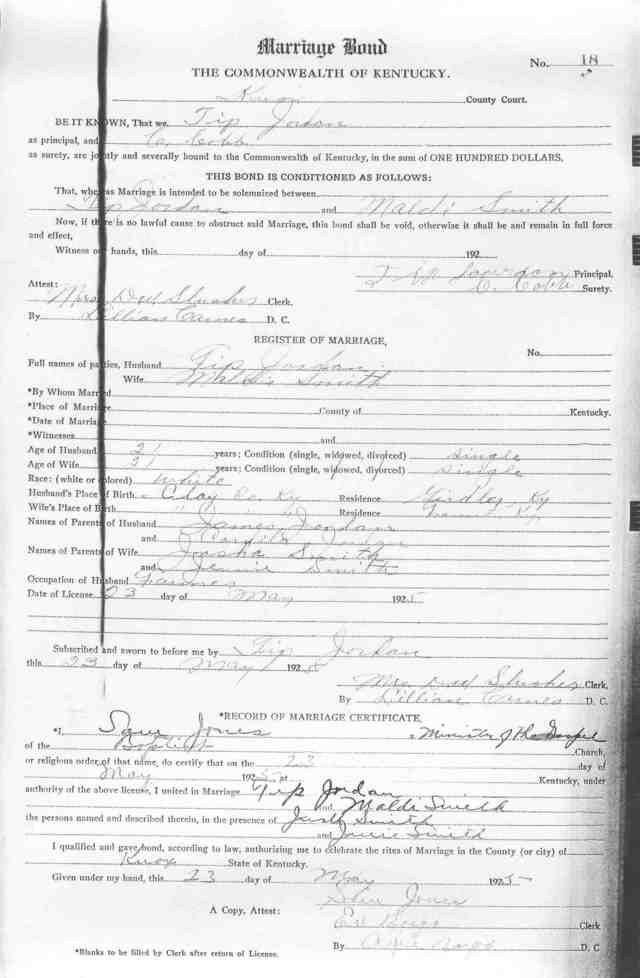 Marriage Bond
No. 18
THE COMMONWEALTH OF KENTUCKY.
Knox County Court.
BE IT KNOWN, That we, Tip Jordan
as principal, and C. Cobb
as surety, are jointly and severally bound to the Commonwealth of Kentucky, in the sum of ONE HUNDRED DOLLARS.
THIS BOND IS CONDITIONED AS FOLLOWS:
That, whereas Marriage is intended to be solemnized between
Tip Jordan and Maldi Smith
Now, if there is no lawful cause to obstruct said Marriage, this bond shall be void, otherwise it shall be and remain in full force
and effect,
Witness our hands, this day of 192
Tip Jourdon Principal,
C. Cobb Surety.
Attest:
Mrs. D.W. Slusher Clerk.
By Lillian Carnes D. C.
REGISTER OF MARRIAGE,
No.
Full names of parties, Husband Tip Jordan
Wife Maldis Smith
*By Whom Married
*Place of Marriage County of Kentucky.
*Date of Marriage
*Witnesses and
Age of Husband 21 years; Condition (single, widowed, divorced) single
Age of Wife 31 years; Condition (single, widowed, divorced) single
Race: (white or colored) White
Husband's Place of Birth Clay Co. Ky Residence Girdler, Ky
Wife's Place of Birth " " " Residence Ky
Names of Parents of Husband James Jordan
and Jordan
Names of Parents of Wife Josha Smith
and Jennie Smith
Occupation of Husband Farmer
Date of License 23 day of May 1925
Subscribed and sworn to before me by Tip Jordan
this 23 day of May 1925
Mrs. D.W. Slusher Clerk,
By Lillian Carnes D. C.
*RECORD OF MARRIAGE CERTIFICATE.
*I, Jones a Minister of the Gospel
of the Baptist Church,
or religious order of that name, do certify that on the 23 day of
May 1925 at Kentucky, under
authority of the above license, I united in Marriage Tip Jordan
and Maldi Smith
the persons named and described therein, in the presence of Smith
and Smith
I qualified and gave bond, according to law, authorizing me to celebrate the rites of Marriage in the County (or city) of
Knox State of Kentucky.
Given under my hand, this 23 day of May 1925
Jones
A Copy, Attest:
Clerk
By D. C.
*Blanks to be filled by Clerk after return of License.